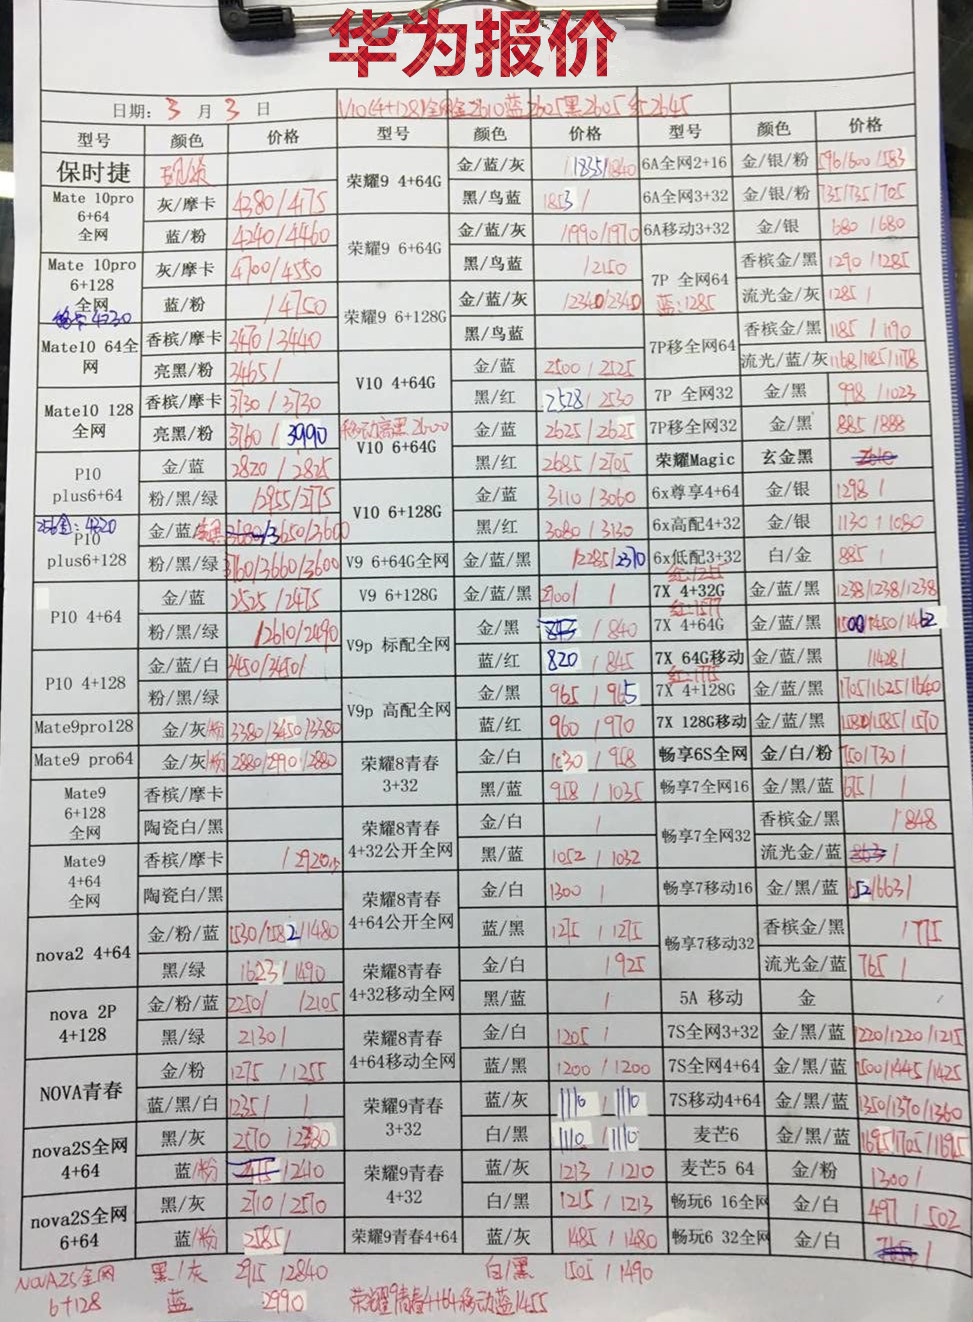 华为报价
日期: 3 月 3 日 V10(4+128)全网金2610蓝2625黑2605红2645
型号 颜色 价格 型号 颜色 价格 型号 颜色 价格
保时捷 荣耀9 4+64G 金/蓝/灰 1835/1840 6A全网2+16 金/银/粉 596/600/583
黑/鸟蓝 1853/ 6A全网3+32 金/银/粉 735/735/705
Mate 10pro 6+64 全网 灰/摩卡 4380/4175
蓝/粉 4240/4460 荣耀9 6+64G 金/蓝/灰 1990/1970 6A移动3+32 金/银 680/680
Mate 10pro 6+128 全网 灰/摩卡 4700/4550 黑/鸟蓝 /2150 7P 全网64 蓝:1285 香槟金/黑 1290/1285
蓝/粉 /4750 荣耀9 6+128G 金/蓝/灰 2340/2340 流光金/灰 1285/
4730
Mate10 64全网 香槟/摩卡 3470/3440 黑/鸟蓝 7P移全网64 香槟金/黑 1185/1190
亮黑/粉 3465/ V10 4+64G 金/蓝 2500/2525 流光/蓝/灰 1168/1185/1178
Mate10 128全网 香槟/摩卡 3730/3730 黑/红 2528/2530 7P 全网32 金/黑 998/1023
亮黑/粉 3760/3990 V10 6+64G 金/蓝 2625/2625 7P移全网32 金/黑 885/888
P10 plus6+64 金/蓝 2820/2825 黑/红 2685/2705 荣耀Magic 玄金黑
粉/黑/绿 /2955/2775 V10 6+128G 金/蓝 3110/3060 6x尊享4+64 金/银 1298/
256金:4220
P10 plus6+128 金/蓝 3650/3600 黑/红 3080/3130 6x高配4+32 金/银 1130/1080
粉/黑/绿 3760/3660/3600 V9 6+64G全网 金/蓝/黑 /2285/2370 6x低配3+32 白/金 885/
P10 4+64 金/蓝 2525/2475 V9 6+128G 金/蓝/黑 2700/ / 7X 4+32G 金/蓝/黑 1238/1238/1238
粉/黑/绿 /2610/2490 V9p 标配全网 金/黑 /840 7X 4+64G 金/蓝/黑 1500/1450/1462
P10 4+128 金/蓝/白 3450/3450/ 蓝/红 820/845 7X 64G移动 金/蓝/黑 /1428/
粉/黑/绿 V9p 高配全网 金/黑 965/965 7X 4+128G 金/蓝/黑 1705/1625/1640
Mate9pro128 金/灰/粉 3380/3450/3380 蓝/红 960/970 7X 128G移动 金/蓝/黑 1580/1585/1570
Mate9 pro64 金/灰/粉 2880/2990/2880 荣耀8青春 3+32 金/白 1030/958 畅享6S全网 金/白/粉 750/730/
Mate9 6+128 全网 香槟/摩卡 黑/蓝 958/1035 畅享7全网16 金/黑/蓝 675/ /
陶瓷白/黑 荣耀8青春 4+32公开全网 金/白 / 畅享7全网32 香槟金/黑 /848
Mate9 4+64 全网 香槟/摩卡 /2920 黑/蓝 1052/1032 流光金/蓝 /
陶瓷白/黑 荣耀8青春 4+64公开全网 金/白 1300/ 畅享7移动16 金/黑/蓝 652/663/
nova2 4+64 金/粉/蓝 1530/1582/1480 蓝/黑 1275/1275 畅享7移动32 香槟金/黑 /775
黑/绿 1623/1490 荣耀8青春 4+32移动全网 金/白 /925 流光金/蓝 765/
nova 2P 4+128 金/粉/蓝 2250/ /2105 黑/蓝 / 5A 移动 金 /
黑/绿 2130/ 荣耀8青春 4+64移动全网 金/白 1205/ 7S全网3+32 金/黑/蓝 1220/1220/1215
NOVA青春 金/粉 1275/1255 蓝/黑 1200/1200 7S全网4+64 金/黑/蓝 1500/1445/1425
蓝/黑/白 1235/ / 荣耀9青春 3+32 蓝/灰 1110/1110 7S移动4+64 金/黑/蓝 1350/1370/1360
nova2S全网 4+64 黑/灰 2570/2330 白/黑 1110/1110 麦芒6 金/黑/蓝 1695/1705/1695
蓝/粉 /2410 荣耀9青春 4+32 蓝/灰 1213/1210 麦芒5 64 金/粉 1300/
nova2S全网 6+64 黑/灰 2710/2570 白/黑 1215/1213 畅玩6 16全网 金/白 497/502
蓝/粉 2585/ 荣耀9青春4+64 蓝/灰 1485/1480 畅玩6 32全网 金/白 /
NOVA2S全网 黑/灰 2915/2840 白/黑 1505/1490
6+128 蓝 2990 荣耀9青春4+64移动蓝1455